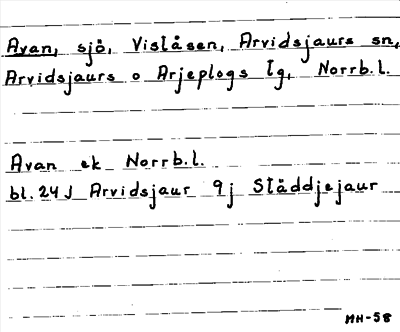 Avan, sjö, Viståsen, Arvidsjaurs sn,
Arvidsjaurs o Arjeplogs tg, Norrb.l.
Avan ek Norrb.l.
bl. 24J Arvidsjaur 9j Städdjejaur
MH-58